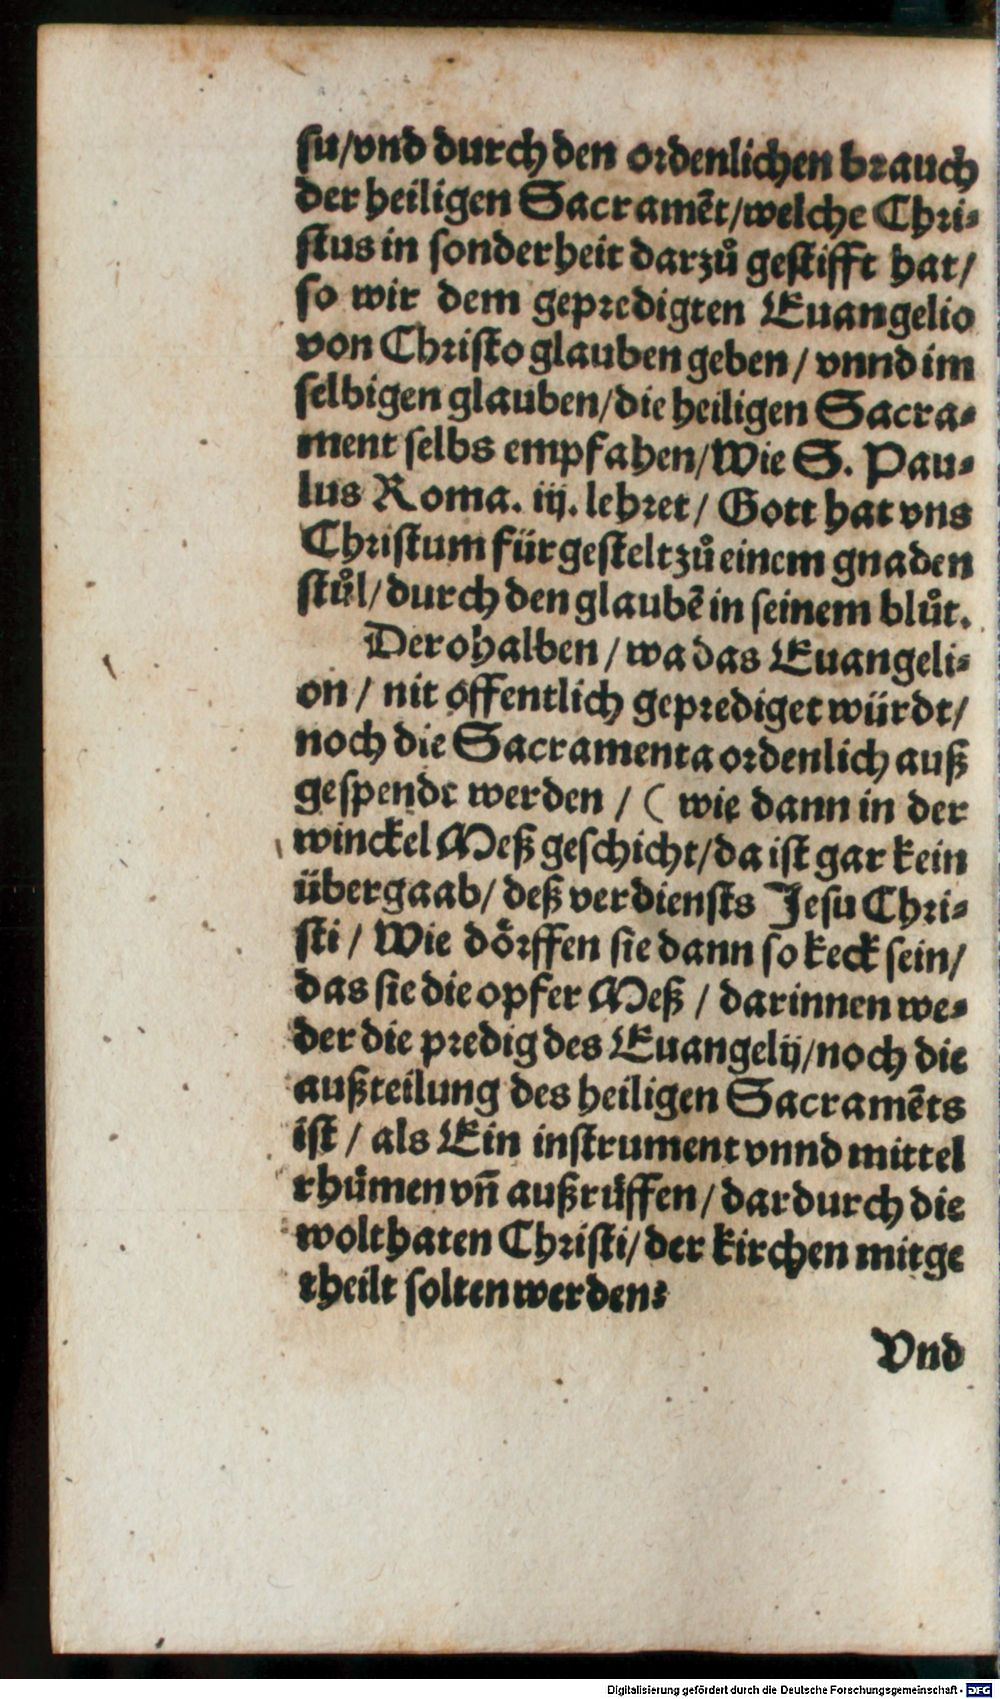 su/vnd durch den ordenlichen brauch
der heiligen Sacramēt/welche Chri-
stus in sonderheit darzů gestifft hat/
so wir dem gepredigten Euangelio
von Christo glauben geben / vnnd im
selbigen glauben/die heiligen Sacra-
ment selbs empfahen/Wie S. Pau-
lus Roma. iij. lehret/ Gott hat vns
Christum fürgestelt zů einem gnaden
stůl/durch den glaubē in seinem blůt.
Derohalben / wa das Euangeli-
on / nit offentlich geprediget würdt/
noch die Sacramenta ordenlich auß
gespendt werden / ( wie dann in der
winckel Meß geschicht/da ist gar kein
übergaab/ deß verdiensts Jesu Chri-
sti / Wie dörffen sie dann so keck sein/
das sie die opfer Meß / darinnen we-
der die predig des Euangelij/noch die
außteilung des heiligen Sacramēts
ist / als Ein instrument vnnd mittel
rhümen vn̄ außrüffen/dardurch die
wolthaten Christi/der kirchen mitge
theilt solten werden:
Vnd
Digitalisierung gefördert durch die Deutsche Forschungsgemeinschaft - DFG